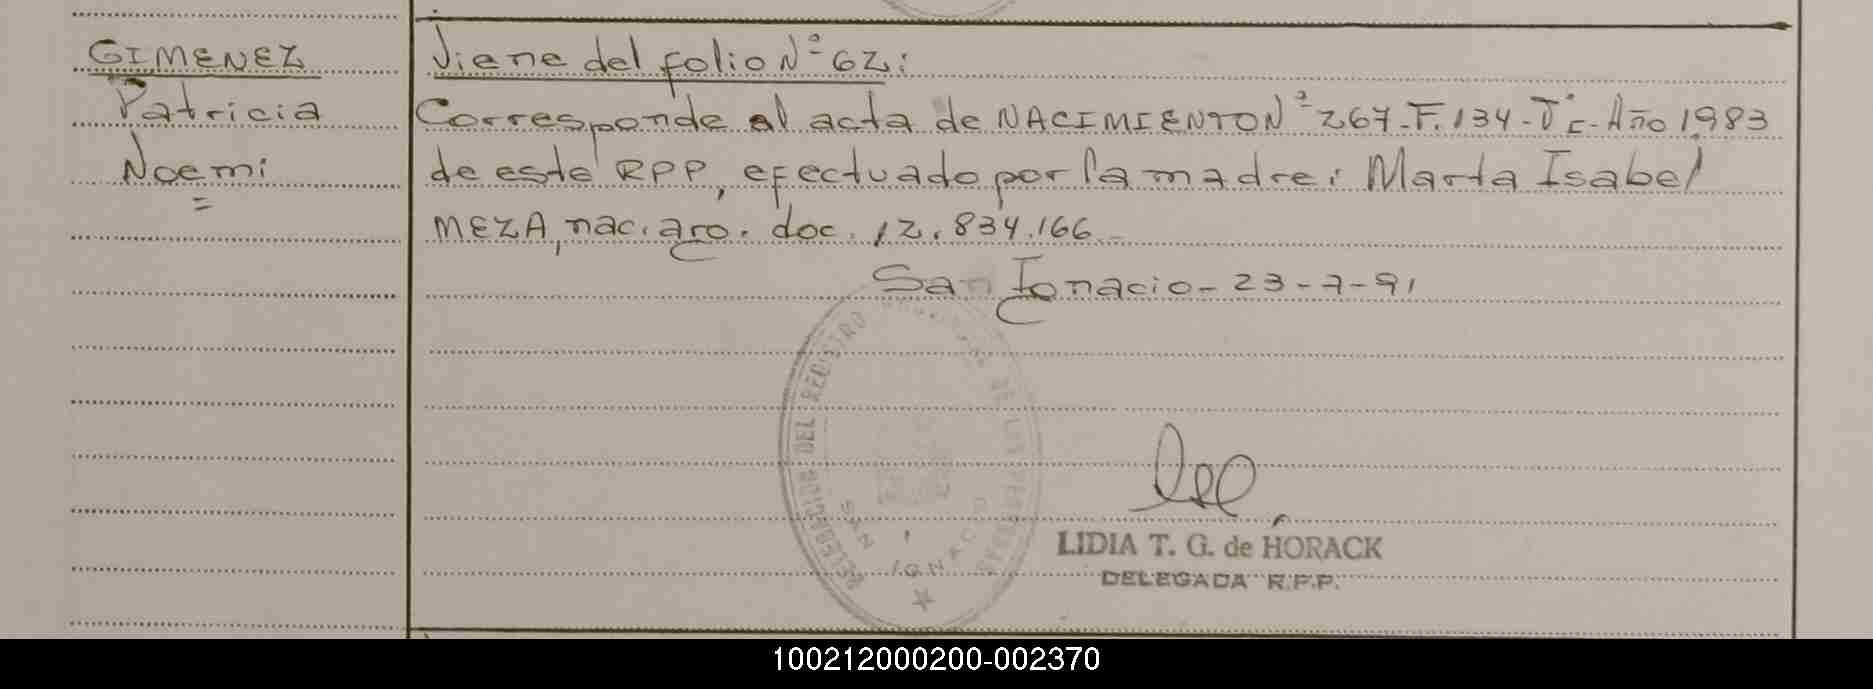 GIMENEZ
Patricia
Noemi
=
Viene del folio Nº 62:
Corresponde al acta de NACIMIENTO Nº 267-F.134-Tº I-Año 1983
de este RPP, efectuado por la madre: Marta Isabel
MEZA, nac. arg. doc. 12.834.166
San Ignacio-23-7-91
DELEGACION DEL REGISTRO DE LAS PERSONAS
SAN IGNACIO
LIDIA T. G. de HORACK
DELEGADA R.P.P.
100212000200-002370